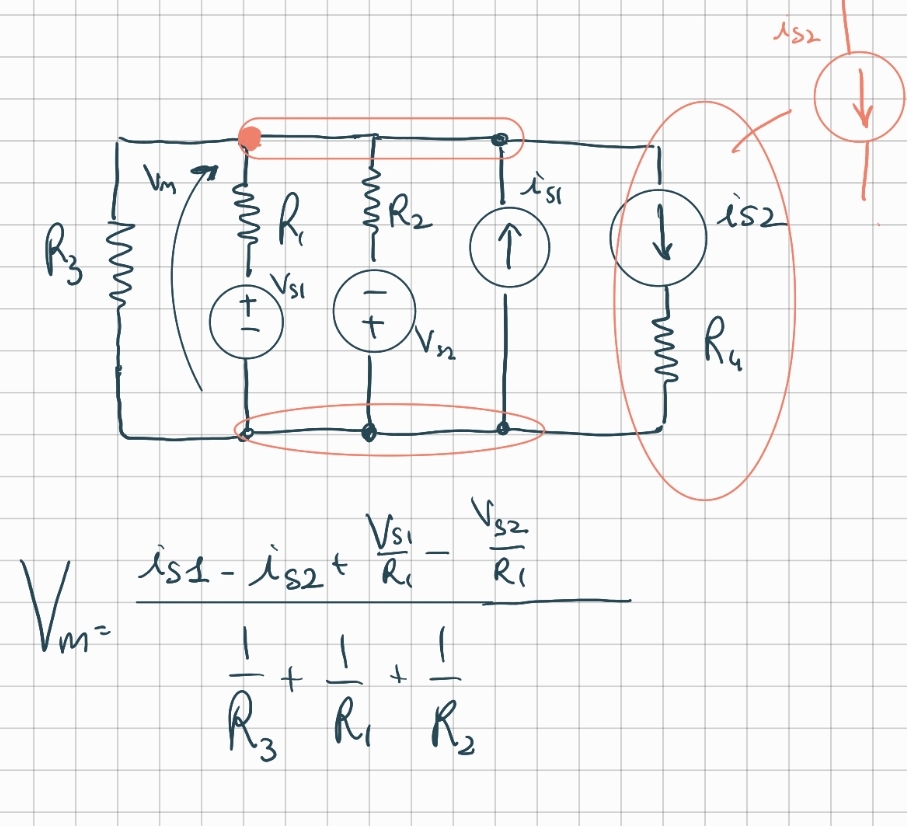 is2
Vm
R3
R1
Vs1
+
−
R2
−
+
Vs2
is1
is2
R4
Vm= (is1 - is2 + Vs1/R1 - Vs2/R1) / (1/R3 + 1/R1 + 1/R2)